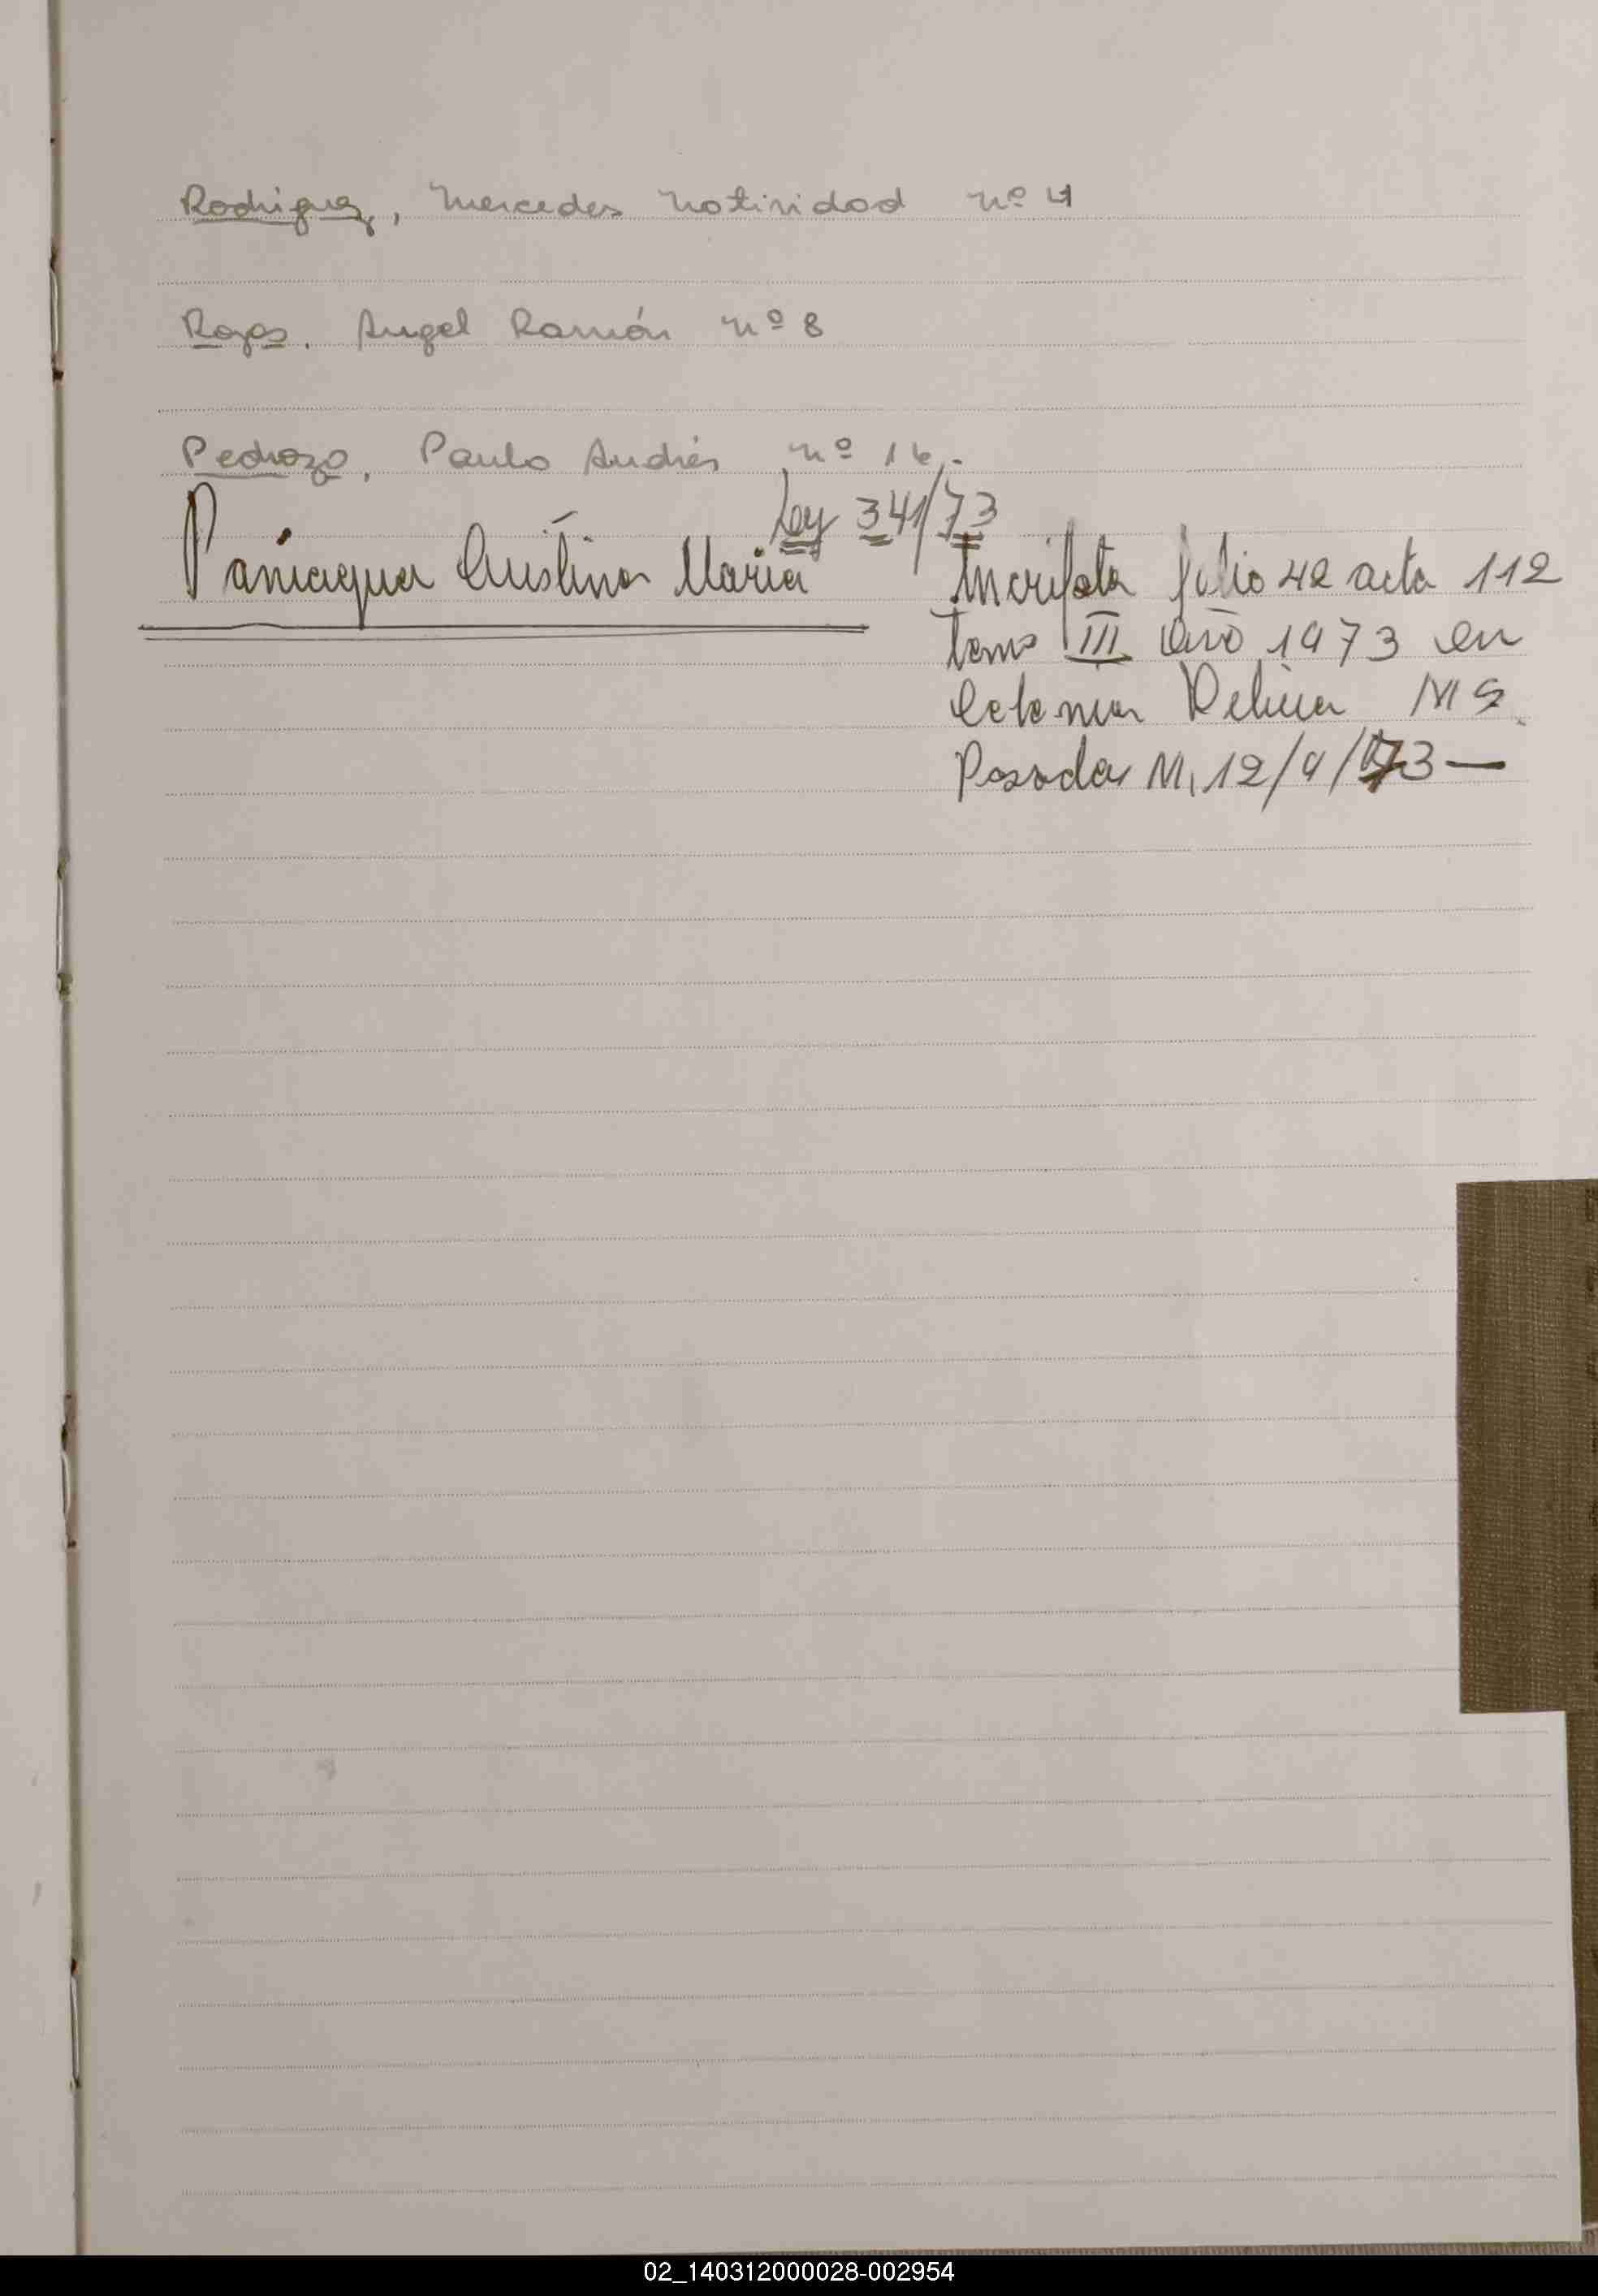 Rodriguez, Mercedes Natividad nº 4
Rojas, Angel Ramón nº 8
Pedrozo, Paulo Andrés nº 16.-
Ley 341/73
Paniagua Cristina Maria Inscripta folio 42 acta 112
tomo III año 1973 en
Colonia Delicia MS.
Posadas M, 12/9/73—
02_140312000028-002954